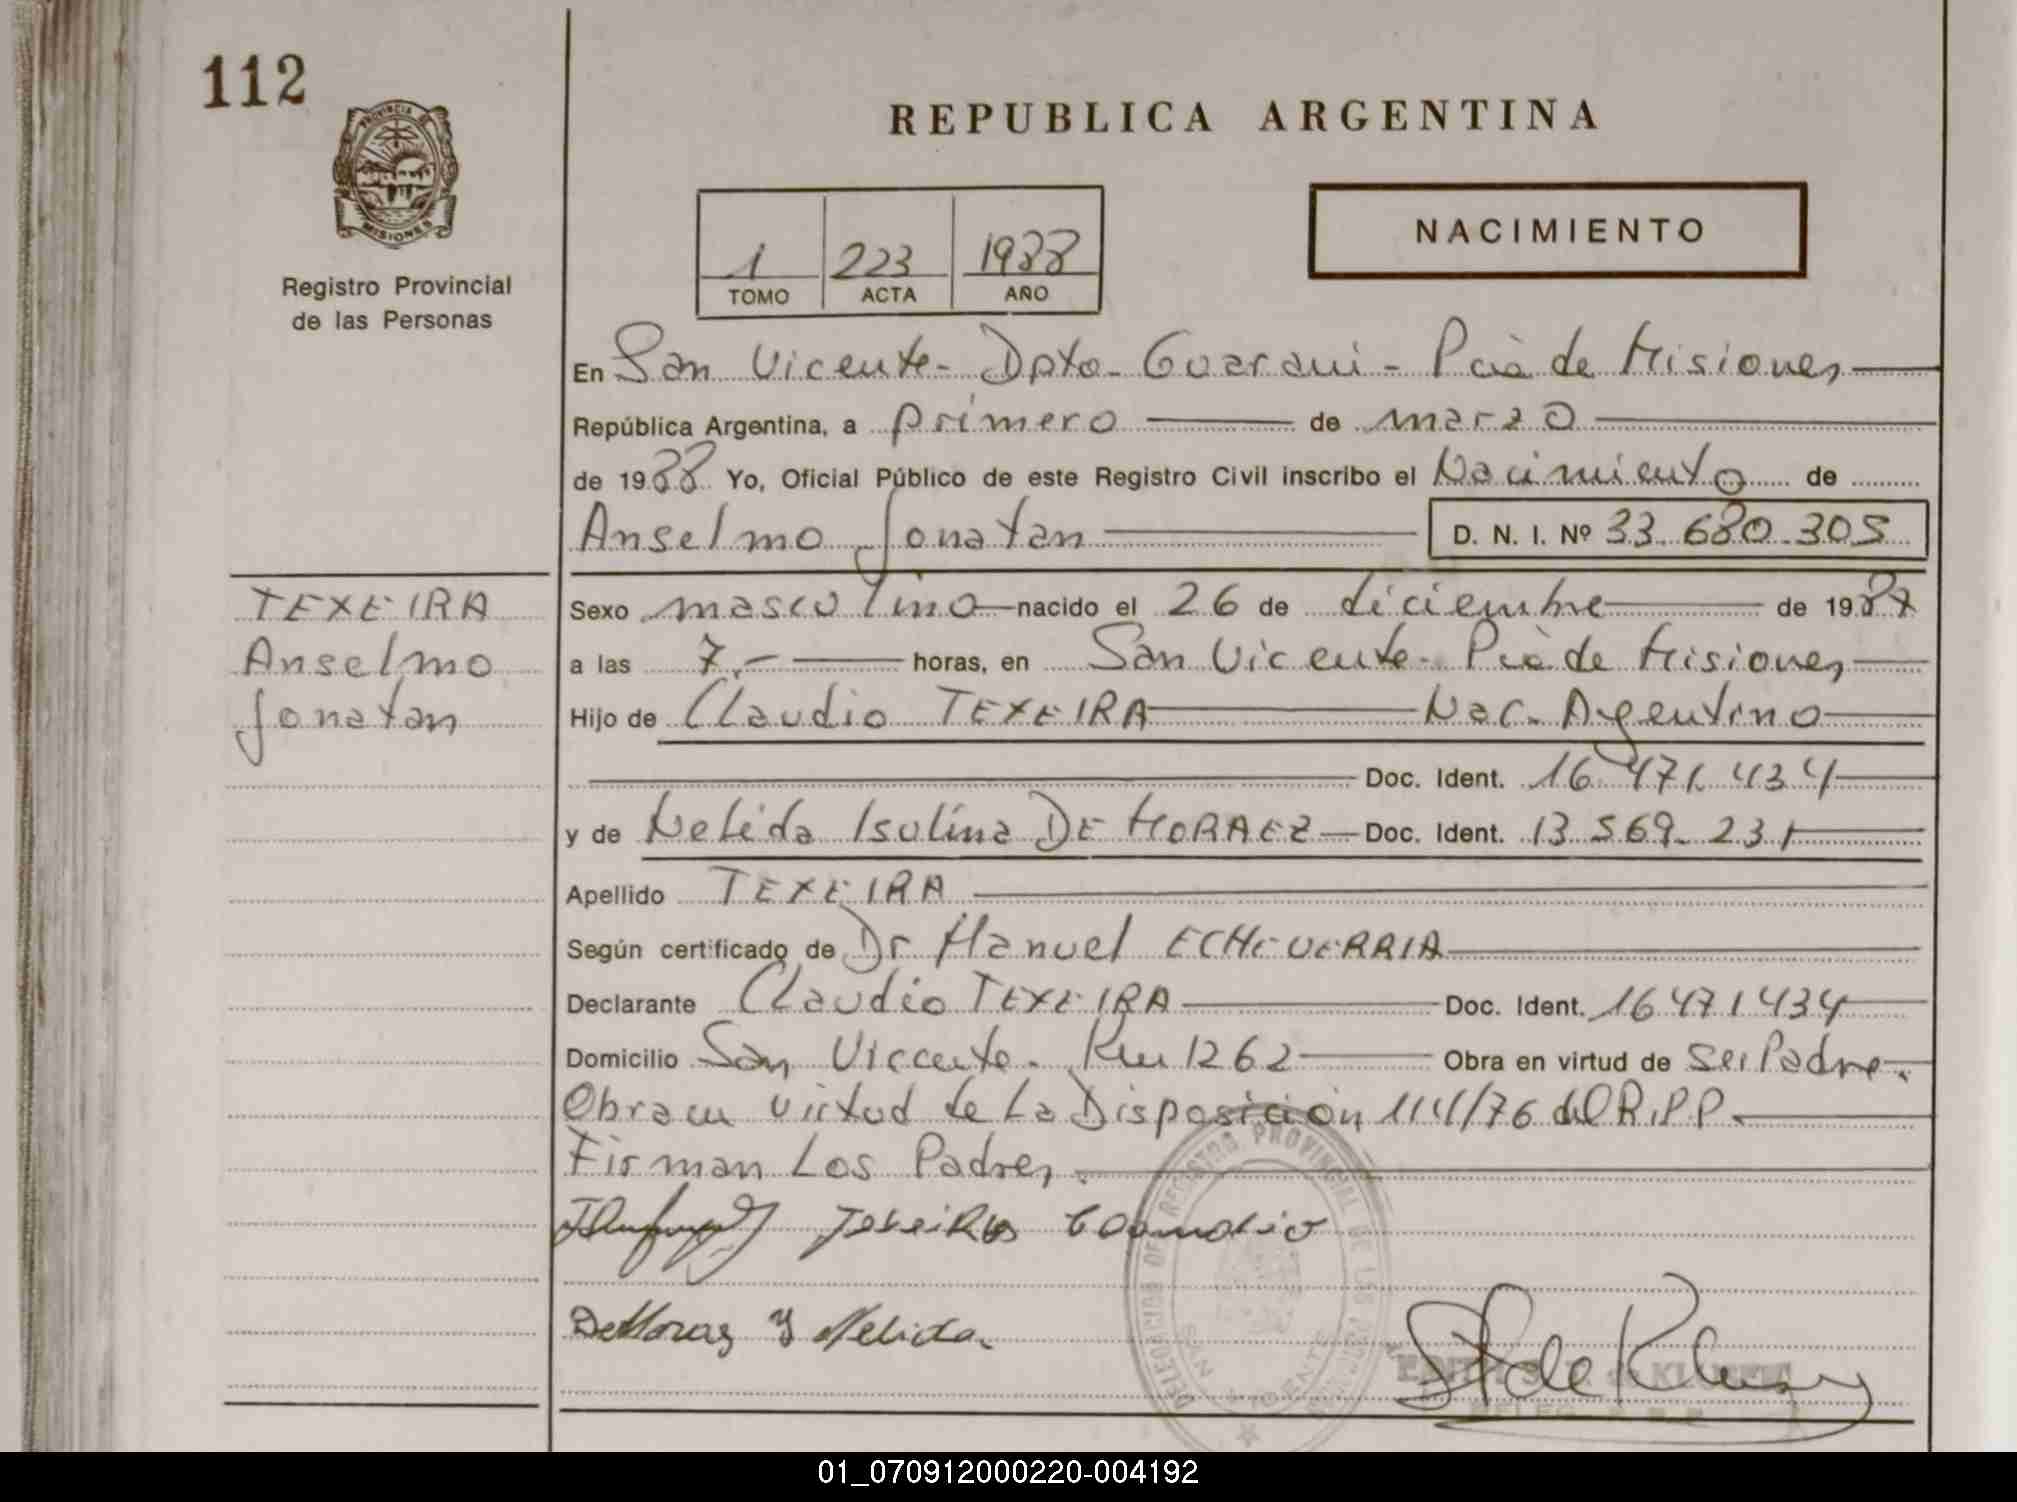 112
PROVINCIA DE
MISIONES
Registro Provincial
de las Personas
REPUBLICA ARGENTINA
1 223 1988
TOMO ACTA AÑO
NACIMIENTO
En San Vicente - Dpto - Guarani - Pcia de Misiones
República Argentina, a primero de marzo
de 1988 Yo, Oficial Público de este Registro Civil inscribo el Nacimiento de
Anselmo Jonatan D. N. I. Nº 33.680.305
TEXEIRA
Anselmo
Jonatan
Sexo masculino nacido el 26 de diciembre de 1987
a las 7.- horas, en San Vicente - Pcia de Misiones
Hijo de Claudio TEXEIRA Nac. Argentino
Doc. Ident. 16 471 434
y de Nelida Isolina DE MORAEZ Doc. Ident. 13 569. 231
Apellido TEXEIRA
Según certificado de Dr Manuel ECHEVERRIA
Declarante Claudio TEXEIRA Doc. Ident. 16 471 434
Domicilio San Vicente - Km 1262 Obra en virtud de ser Padre.
Obra en virtud de La Disposición 114/76 del R.P.P.
Firman Los Padres.
Texeira Claudio
DeMoraez Y Nelida
DELEGACION DEL REGISTRO PROVINCIAL DE LAS PERSONAS
SAN VICENTE
01_070912000220-004192